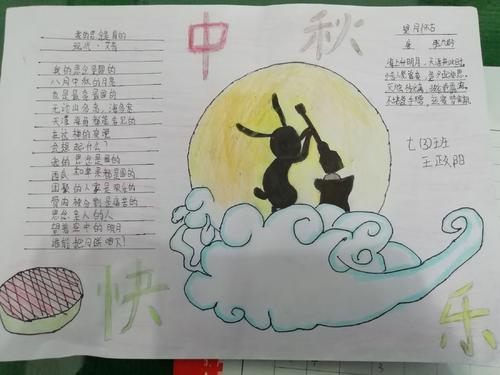 中秋
快乐
我的思念是圆的
现代·艾青
我的思念是圆的
八月中秋的月亮
也是最亮最圆的
无论山多高,海多宽
天涯海角都能看见它
在这样的夜晚
会想起什么?
我的思念是圆的
西瓜和苹果都是圆的
团聚的人家是欢乐的
骨肉被分割是痛苦的
思念亲人的人
望着空中的明月
谁能把月饼咽下?
望月怀古
唐 张九龄
海上生明月,天涯共此时
情人怨遥夜,竟夕起相思
灭烛怜光满,披衣觉露滋
不堪盈手赠,还寝梦佳期
七(3)班
王政阳